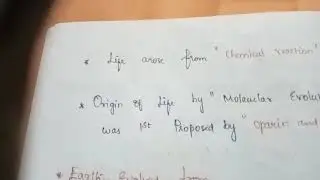 * Life arose from "Chemical reaction"
* Origin of Life by "Molecular Evolu
was 1st Proposed by "Oparin and
* Earth evolved from